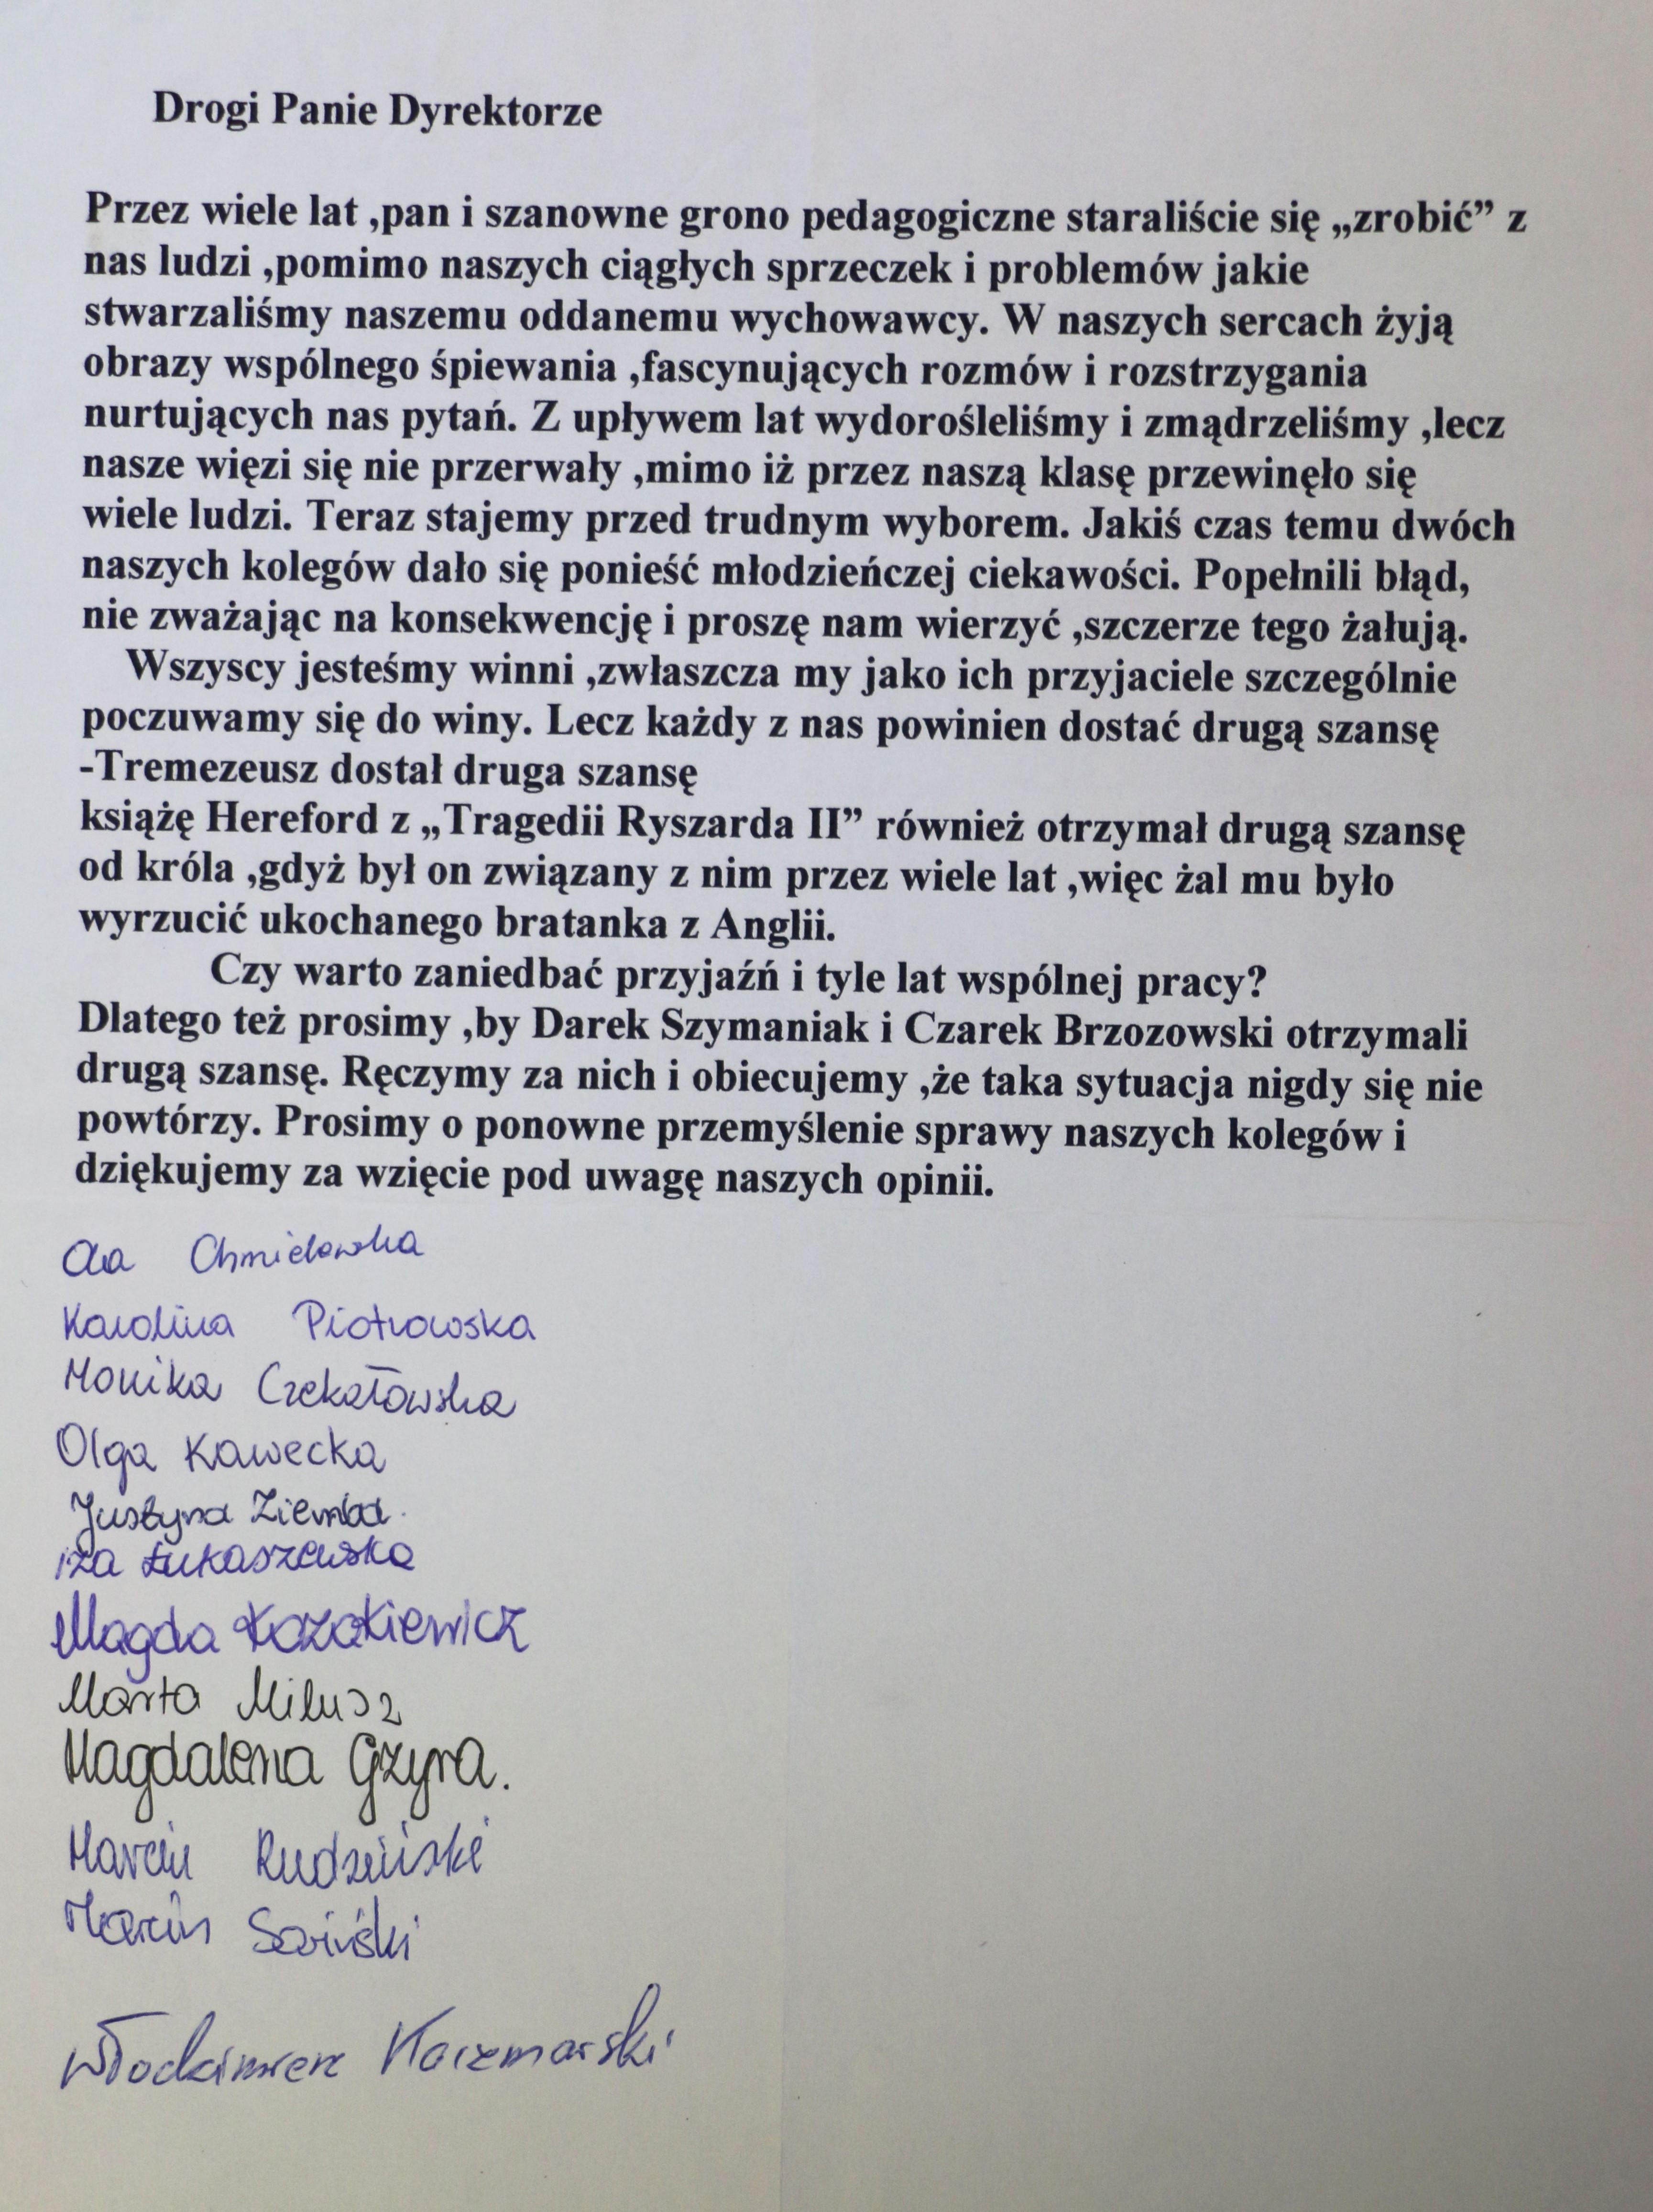 Drogi Panie Dyrektorze
Przez wiele lat ,pan i szanowne grono pedagogiczne staraliście się „zrobić” z
nas ludzi ,pomimo naszych ciągłych sprzeczek i problemów jakie
stwarzaliśmy naszemu oddanemu wychowawcy. W naszych sercach żyją
obrazy wspólnego śpiewania ,fascynujących rozmów i rozstrzygania
nurtujących nas pytań. Z upływem lat wydorośleliśmy i zmądrzeliśmy ,lecz
nasze więzi się nie przerwały ,mimo iż przez naszą klasę przewinęło się
wiele ludzi. Teraz stajemy przed trudnym wyborem. Jakiś czas temu dwóch
naszych kolegów dało się ponieść młodzieńczej ciekawości. Popełnili błąd,
nie zważając na konsekwencję i proszę nam wierzyć ,szczerze tego żałują.
Wszyscy jesteśmy winni ,zwłaszcza my jako ich przyjaciele szczególnie
poczuwamy się do winy. Lecz każdy z nas powinien dostać drugą szansę
-Tremezeusz dostał druga szansę
książę Hereford z „Tragedii Ryszarda II” również otrzymał drugą szansę
od króla ,gdyż był on związany z nim przez wiele lat ,więc żal mu było
wyrzucić ukochanego bratanka z Anglii.
Czy warto zaniedbać przyjaźń i tyle lat wspólnej pracy?
Dlatego też prosimy ,by Darek Szymaniak i Czarek Brzozowski otrzymali
drugą szansę. Ręczymy za nich i obiecujemy ,że taka sytuacja nigdy się nie
powtórzy. Prosimy o ponowne przemyślenie sprawy naszych kolegów i
dziękujemy za wzięcie pod uwagę naszych opinii.
Chmielewska
Karolina Piotrowska
Monika Czekałowska
Olga Kawecka
Justyna Ziemba
Iza Łukaszewska
Magda Kozakiewicz
Marta Milusz
Magdalena Gzyra.
Marcin Rudziński
Marcin
Włodzimierz Kaczmarski